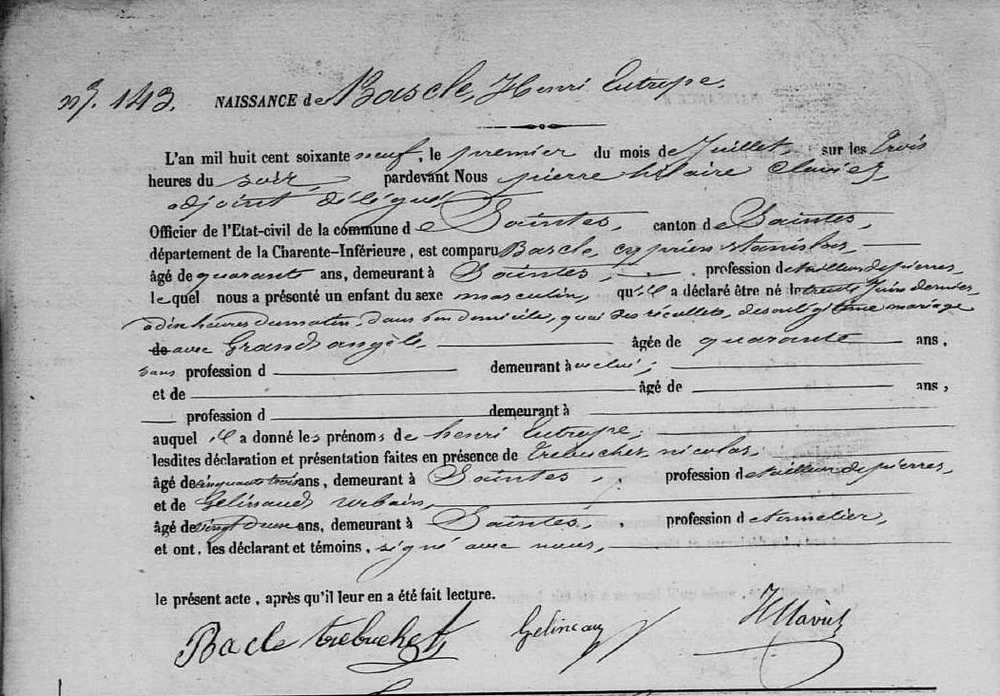 N° 143. NAISSANCE de Bascle, Henri Eutrope.
L'an mil huit cent soixante neuf, le premier du mois de Juillet sur les trois
heures du soir, pardevant Nous pierre hilaire
adjoint délégué
Officier de l'Etat-civil de la commune d e Saintes, canton d e Saintes,
département de la Charente-Inférieure, est comparu Bascle, cyprien stanislas,
âgé de quarante ans, demeurant à Saintes, profession de tailleur de pierres,
le quel nous a présenté un enfant du sexe masculin, qu'il a déclaré être né le trente Juin dernier,
a dix heures du matin, dans son domicile, quai des récollets, de son légitime mariage
de avec Grand angèle, âgée de quarante ans,
sans profession d demeurant à
et de âgé de ans,
profession d demeurant à
auquel il a donné les prénoms de henri Eutrope,
lesdites déclaration et présentation faites en présence de trebuchet nicolas,
âgé de cinquante trois ans, demeurant à Saintes, profession de tailleur de pierres,
et de Gelineaud urbain,
âgé de vingt deux ans, demeurant à Saintes, profession de tonnelier,
et ont, les déclarant et témoins, signé avec nous,
le présent acte, après qu'il leur en a été fait lecture.
Bacle trebuchet Gelineau